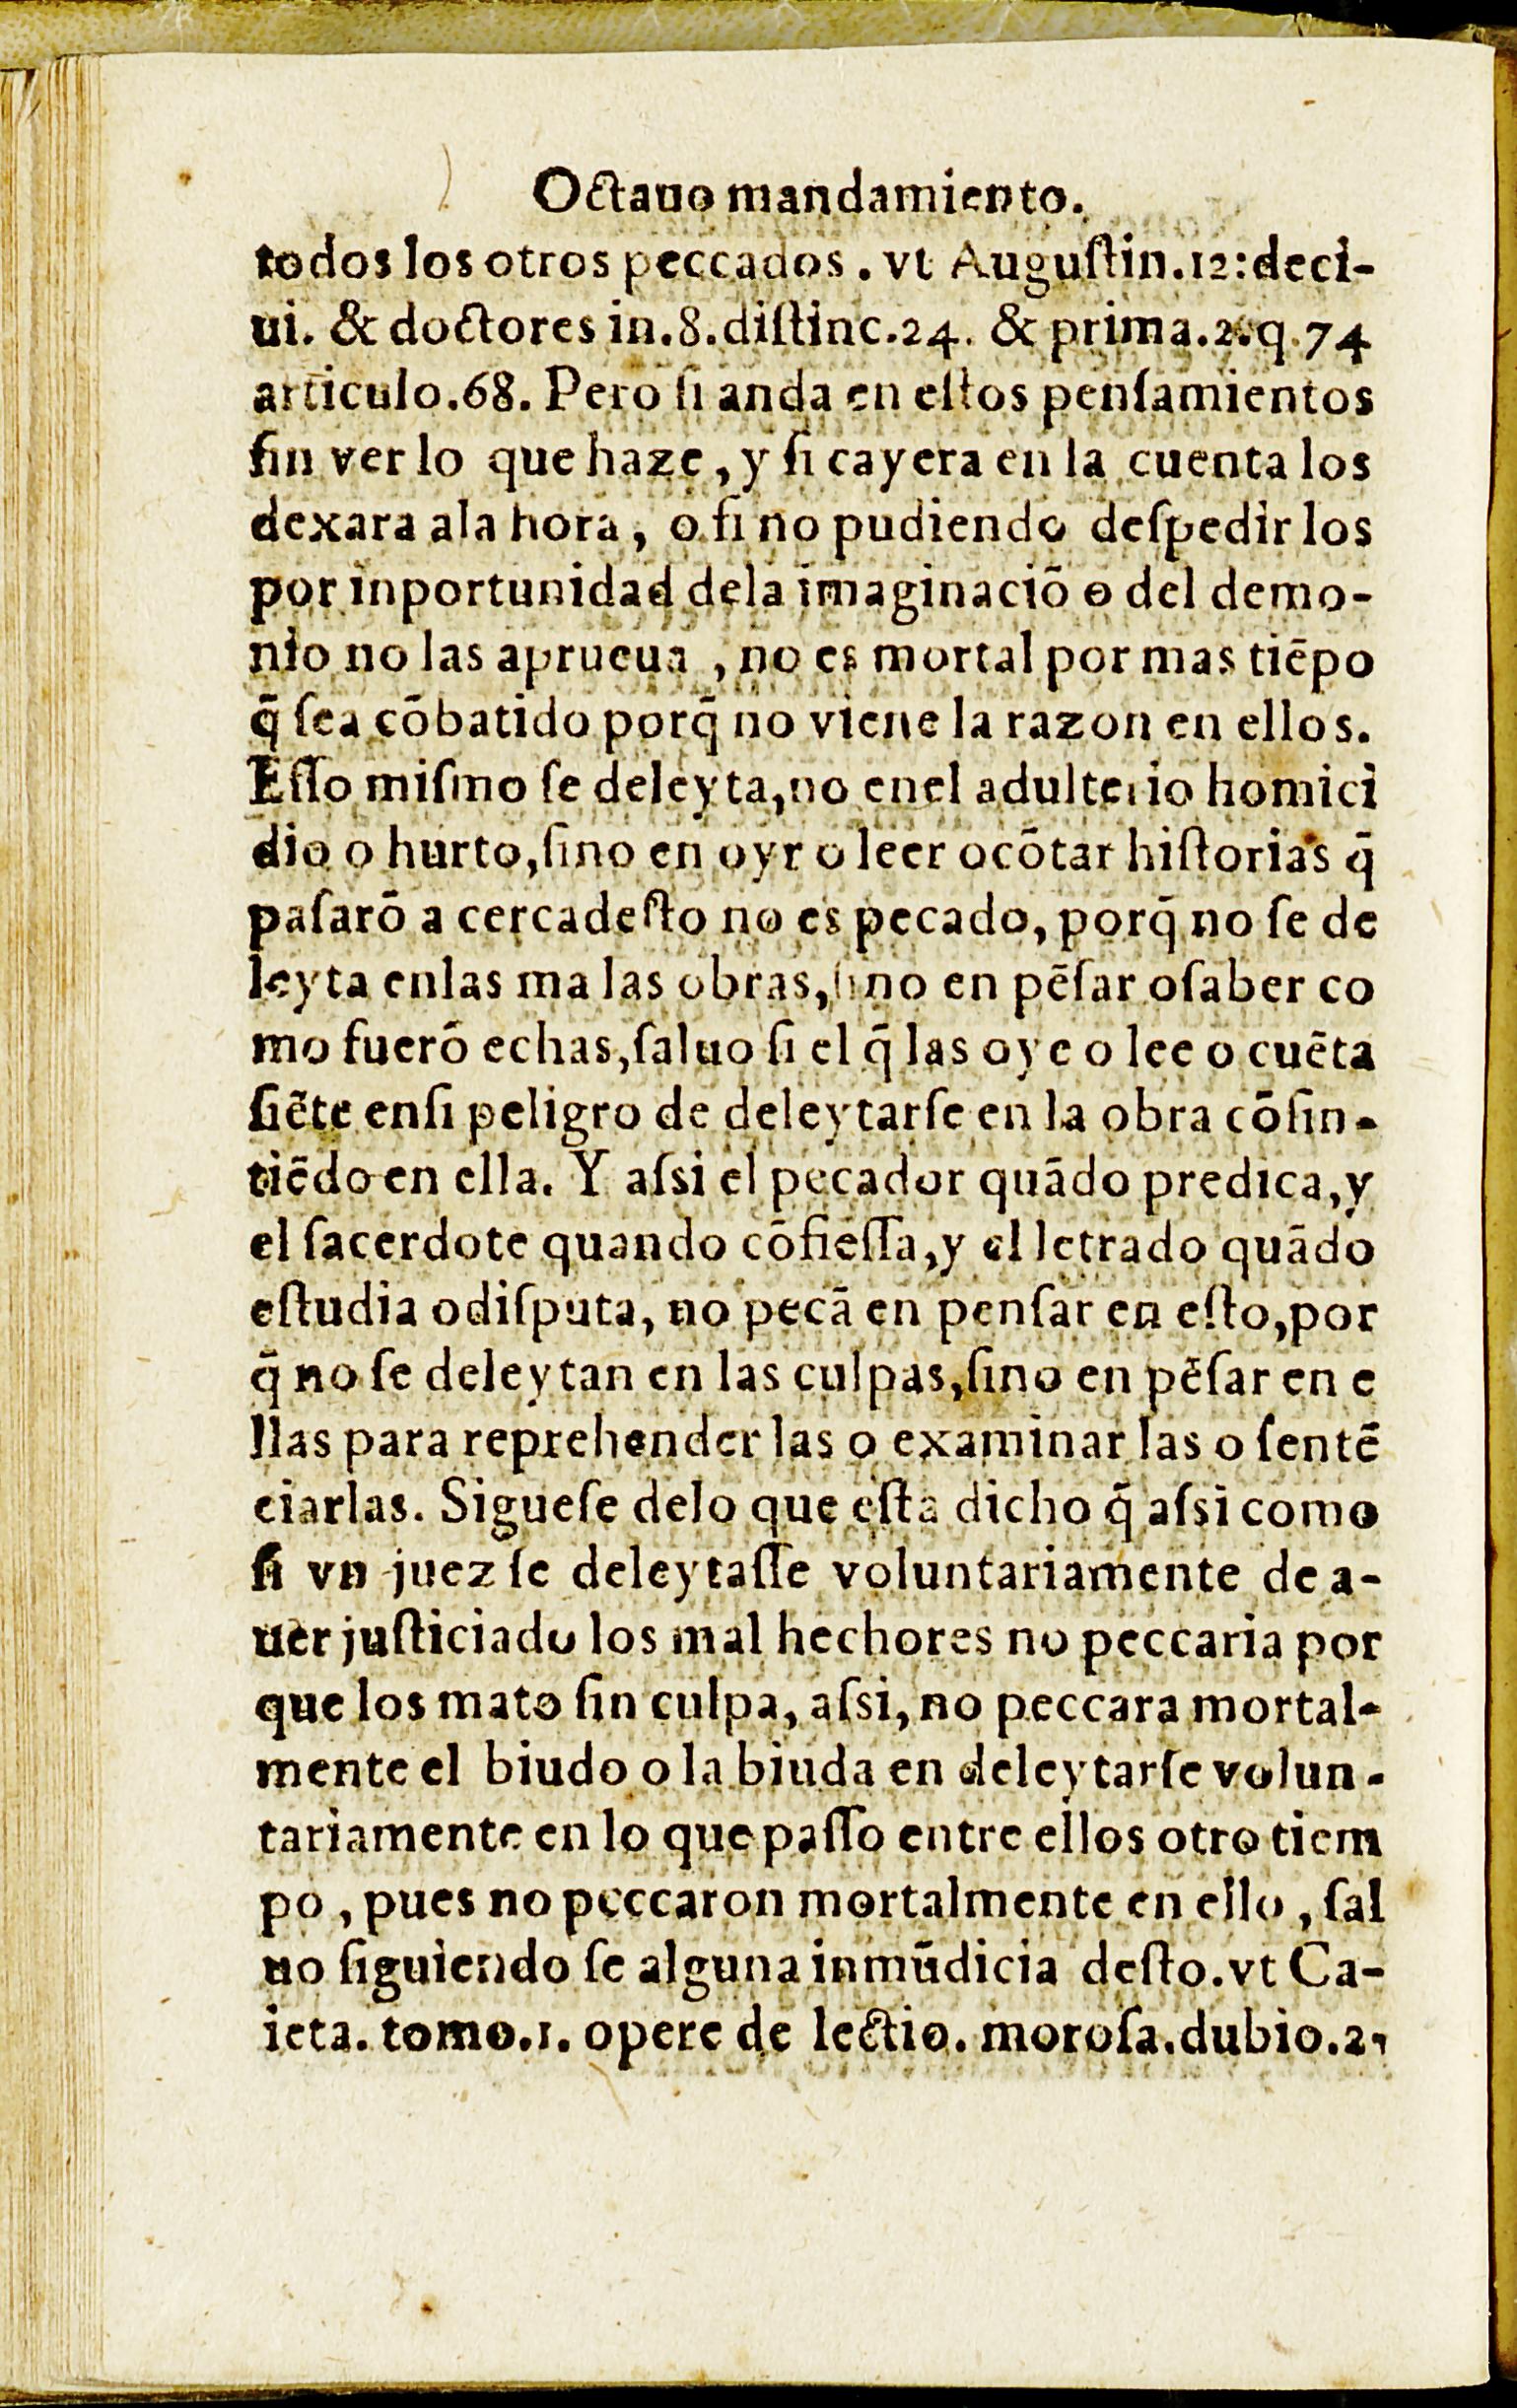 Octauo mandamiento.
todos los otros peccados. vt Auguſtin.12:deci-
ui. & doctores in.8.diſtinc.24. & prima.2.q.74
articulo.68. Pero ſi anda en eſtos penſamientos
ſin ver lo que haze, y ſi cayera en la cuenta los
dexara ala hora, o ſi no pudiendo deſpedir los
por inportunidad dela imaginaciō o del demo-
nio no las aprueua, no es mortal por mas tiēpo
q̄ ſea cōbatido porq̄ no viene la razon en ellos.
Eſſo miſmo ſe deleyta,no enel adulterio homici
dio o hurto,ſino en oyr o leer ocōtar hiſtorias q̄
paſarō a cercadeſto no es pecado, porq̄ no ſe de
leyta enlas malas obras,ſino en pēſar oſaber co
mo fuerō echas,ſaluo ſi el q̄ las oye o lee o cuēta
ſiēte enſi peligro de deleytarſe en la obra cōſin-
tiēdo en ella. Y aſsi el pecador quādo predica,y
el ſacerdote quando cōfieſſa,y el letrado quādo
eſtudia odiſputa, no pecā en penſar en eſto,por
q̄ no ſe deleytan en las culpas,ſino en pēſar en e
llas para reprehender las o examinar las o ſentē
ciarlas. Sigueſe delo que eſta dicho q̄ aſsi como
ſi vn juez ſe deleytaſſe voluntariamente de a-
uer juſticiado los mal hechores no peccaria por
que los mato ſin culpa, aſsi, no peccara mortal-
mente el biudo o la biuda en deleytarſe volun-
tariamente en lo que paſſo entre ellos otro tiem
po, pues no peccaron mortalmente en ello, ſal
uo ſiguiendo ſe alguna inmūdicia deſto.vt Ca-
ieta. tomo.1. opere de lectio. moroſa.dubio.2,